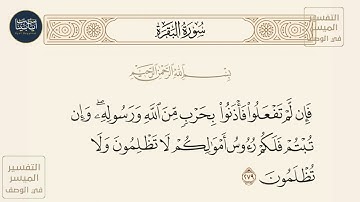 سُورَةُ البَقَرَةِ
بِسْمِ اللَّهِ الرَّحْمَٰنِ الرَّحِيمِ
فَإِن لَّمْ تَفْعَلُوا۟ فَأْذَنُوا۟ بِحَرْبٍ مِّنَ ٱللَّهِ وَرَسُولِهِۦ ۖ وَإِن
تُبْتُمْ فَلَكُمْ رُءُوسُ أَمْوَٰلِكُمْ لَا تَظْلِمُونَ وَلَا
تُظْلَمُونَ ٢٧٩
التفسير
الميسر
في الوصف
التفسير
الميسر
في الوصف